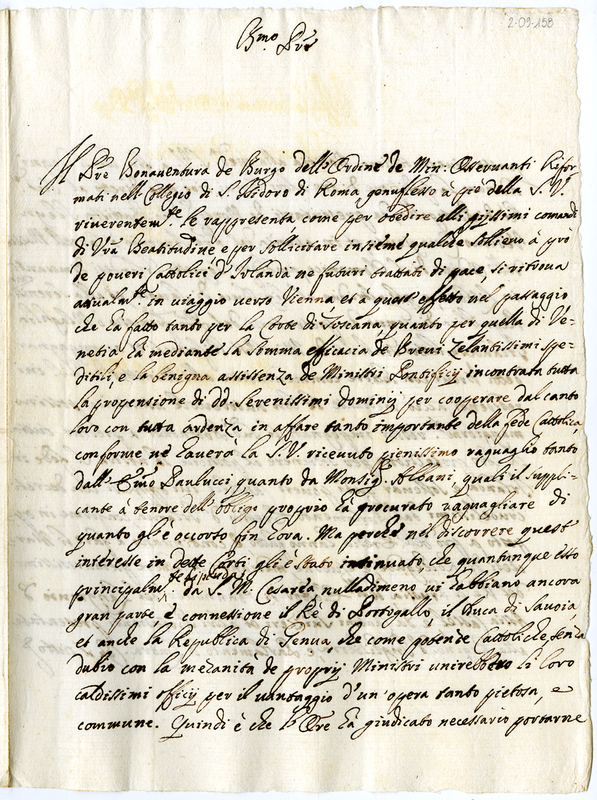 2-09-158
Bmo Prē
Il Pre Bonauentura de Burgo dell'Ordine de Min: Osseruanti Rifor-
mati nell Collegio di S. Isidoro di Roma genuflesso à piè della S. V.
riuerentemte. le rappresenta, come per obedire alli giissimi comandi
di Vrā Beatitudine e per sollicitare insieme qualche sollieuo à prò
de poueri Cattolici d'Irlanda ne futuri trattati di pace, si ritroua
attualmte. in uiaggio uerso Vienna et à quest' effetto nel passaggio
che hà fatto tanto per la Corte di Toscana quanto per quella di Ve-
netia hà mediante la somma efficacia de Breui Zelantissimi spe-
ditili, e la benigna assistenza de Ministri Pontificij incontrata tutta
la propensione di dd. Serenissimi Dominij per cooperare dal canto
loro con tutta ardenza in affare tanto importante della fede Cattolica
conforme nè hauerà la S. V. riceuuto pienissimo raguaglio tanto
dall' Emo Paulucci quanto da Monsigr. Albani, quali il suppli-
cante à tenore dell' obligo proprio hà procurato raguagliare di
quanto gl'è occorso fin hora. Ma perche nel discorrere quest'
interesse in dette Corti gli è stato insinuato che quantunque esso
principalmte dipenda da S. M. Cesarea nulladimeno ui habbiano ancora
gran parte, è connessione il Rè di Portogallo, il Duca di Sauoia
et anche la Republica di Genua, che come potenze Cattoliche senza
dubio con la mezanità de proprij Ministri unirebbero li loro
caldissimi officij per il uantaggio d'un' opera tanto pietosa, e
commune. Quindi è che l'Ore hà giudicato necessario portarne